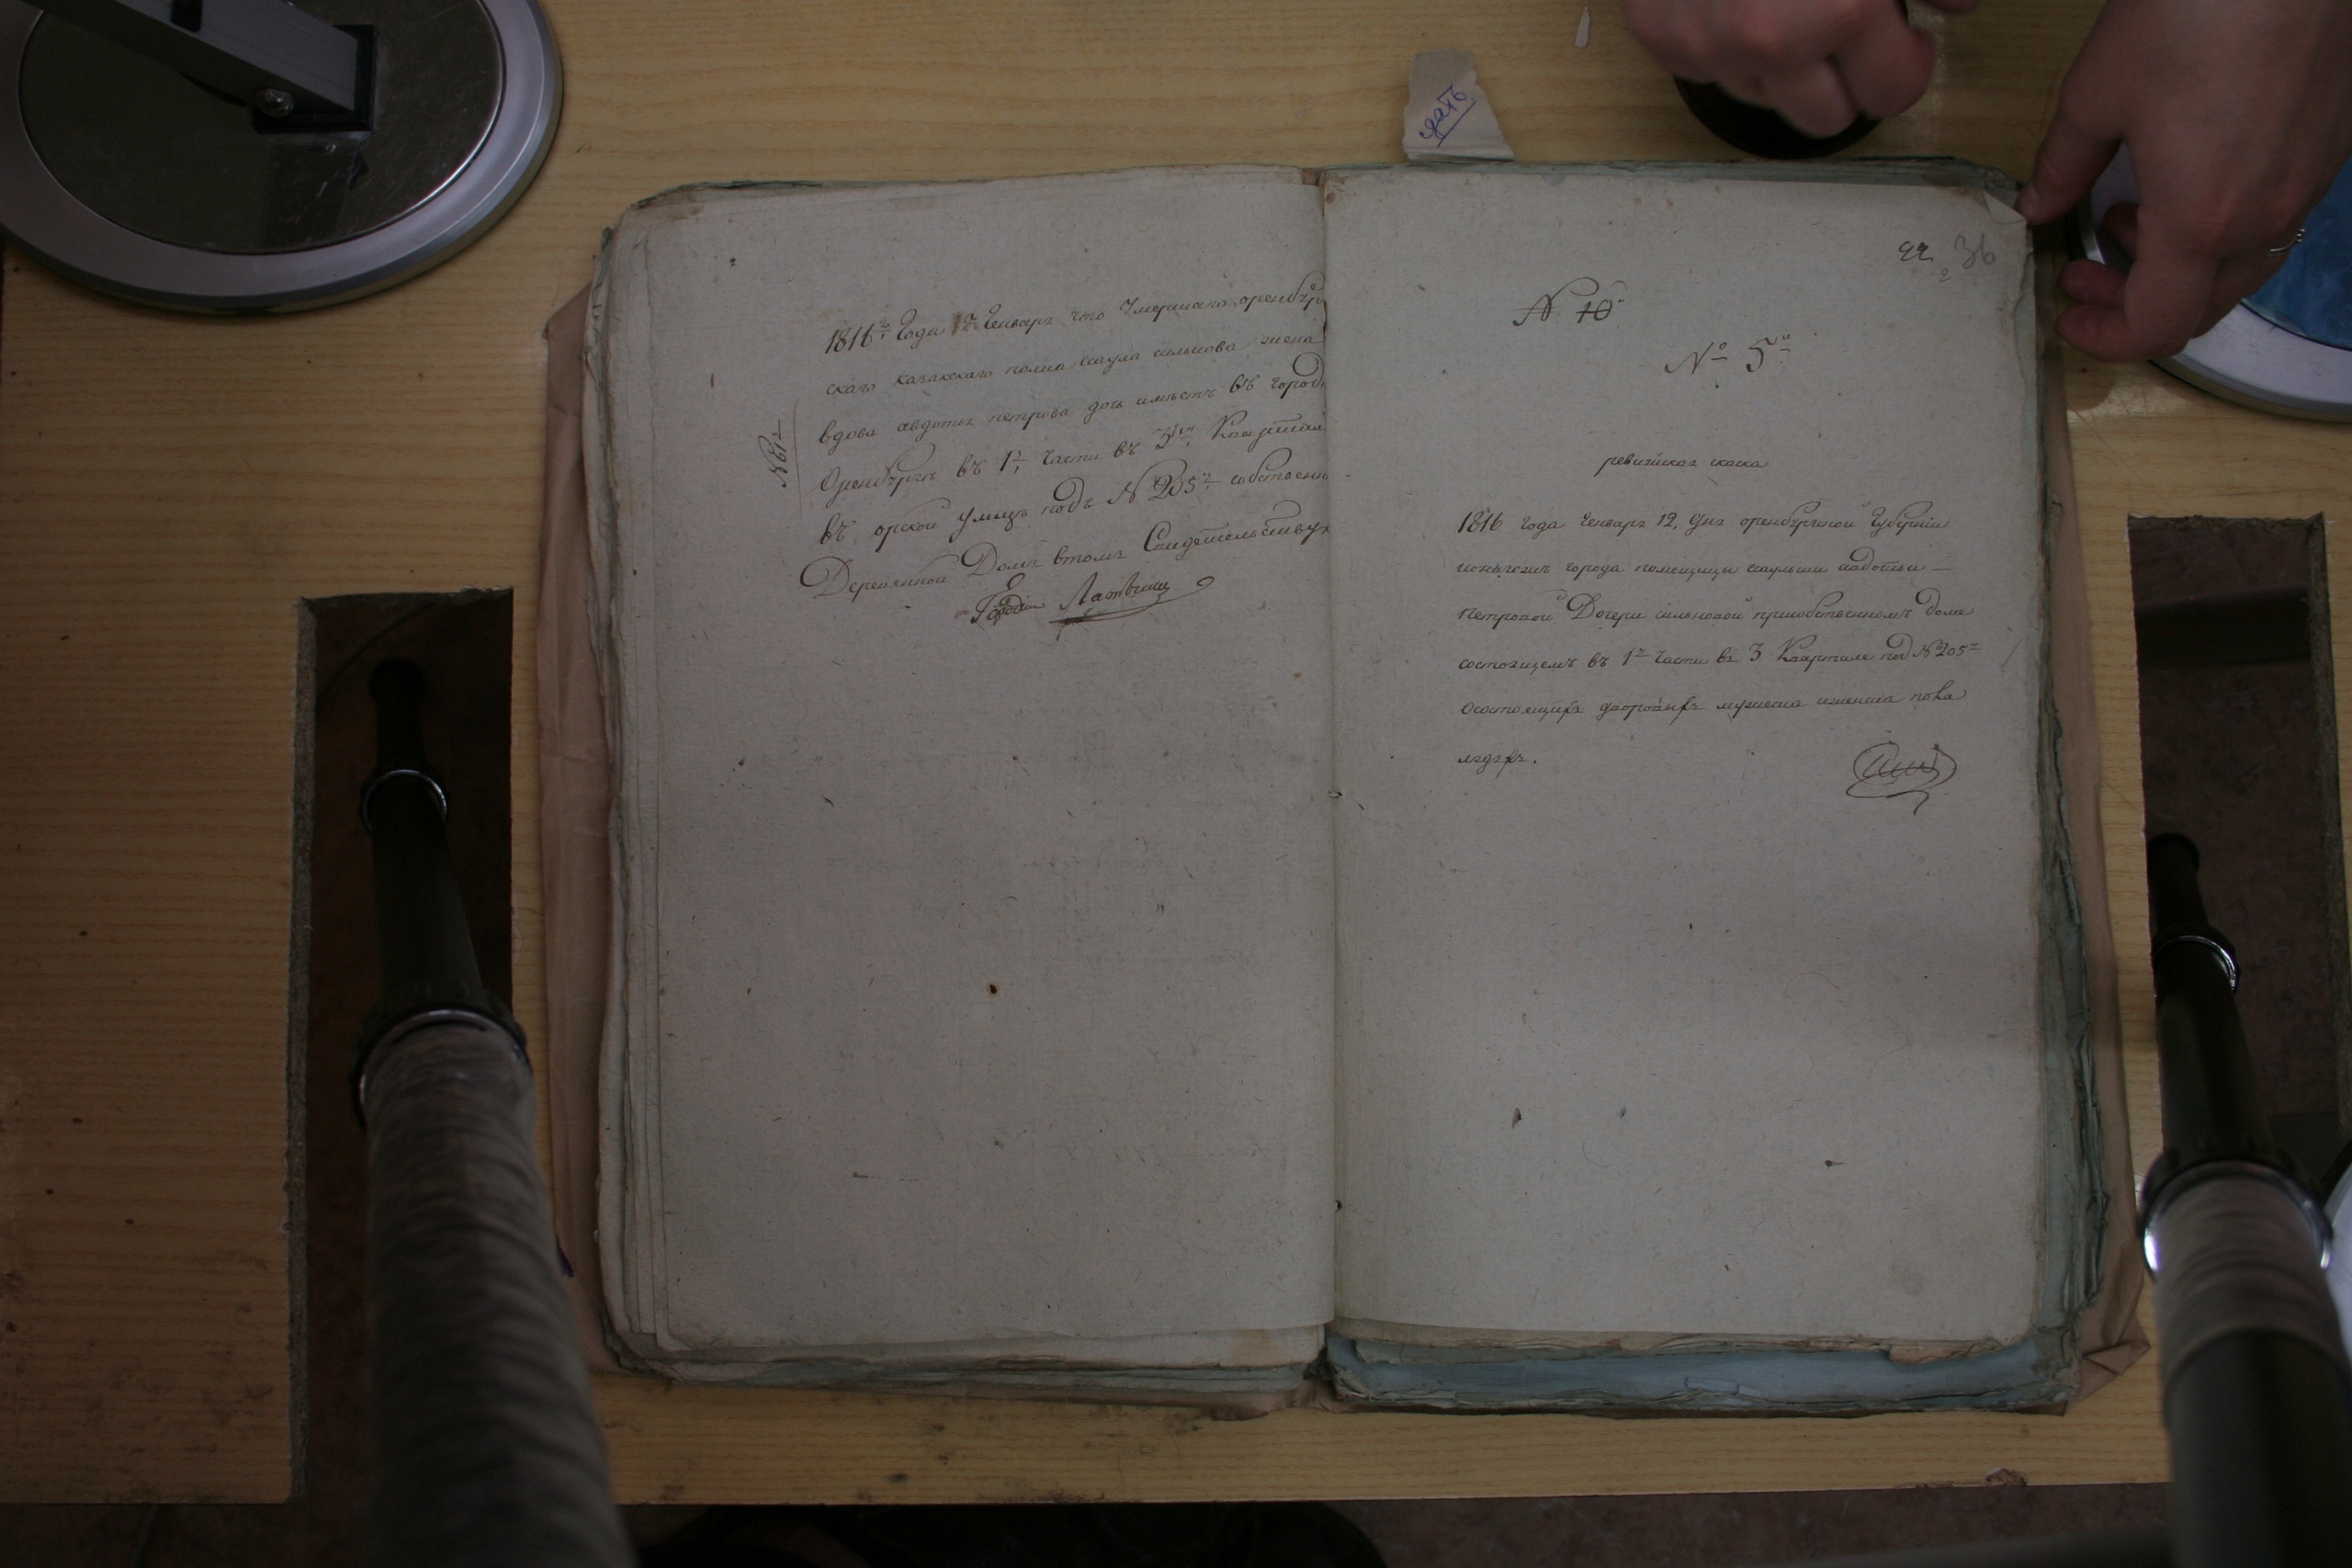 дать
1816го Года 12 Генваря что Умершаго оренбур
скаго казакскаго полка есаула сильнова жена
вдова авдотья петрова дочь имѣетъ въ город
Оренбургѣ въ 1й части въ 3м Квартал
въ орской улицѣ подъ № 205м собственн
Деревянной Домъ втомъ Свидетельству
№ 61
42 36
2
№ 10
№ 5й
ревизская скаска
1816 года Генваря 12, дня оренбургской Губернии
города помещицы есаульши авдотьи
Петровой Дочери сильновой присобственномъ доме
состоящемъ въ 1й части въ 3 Квартале под № 205м
осостоящихъ дворовыхъ мужеска иженска пола
людяхъ.